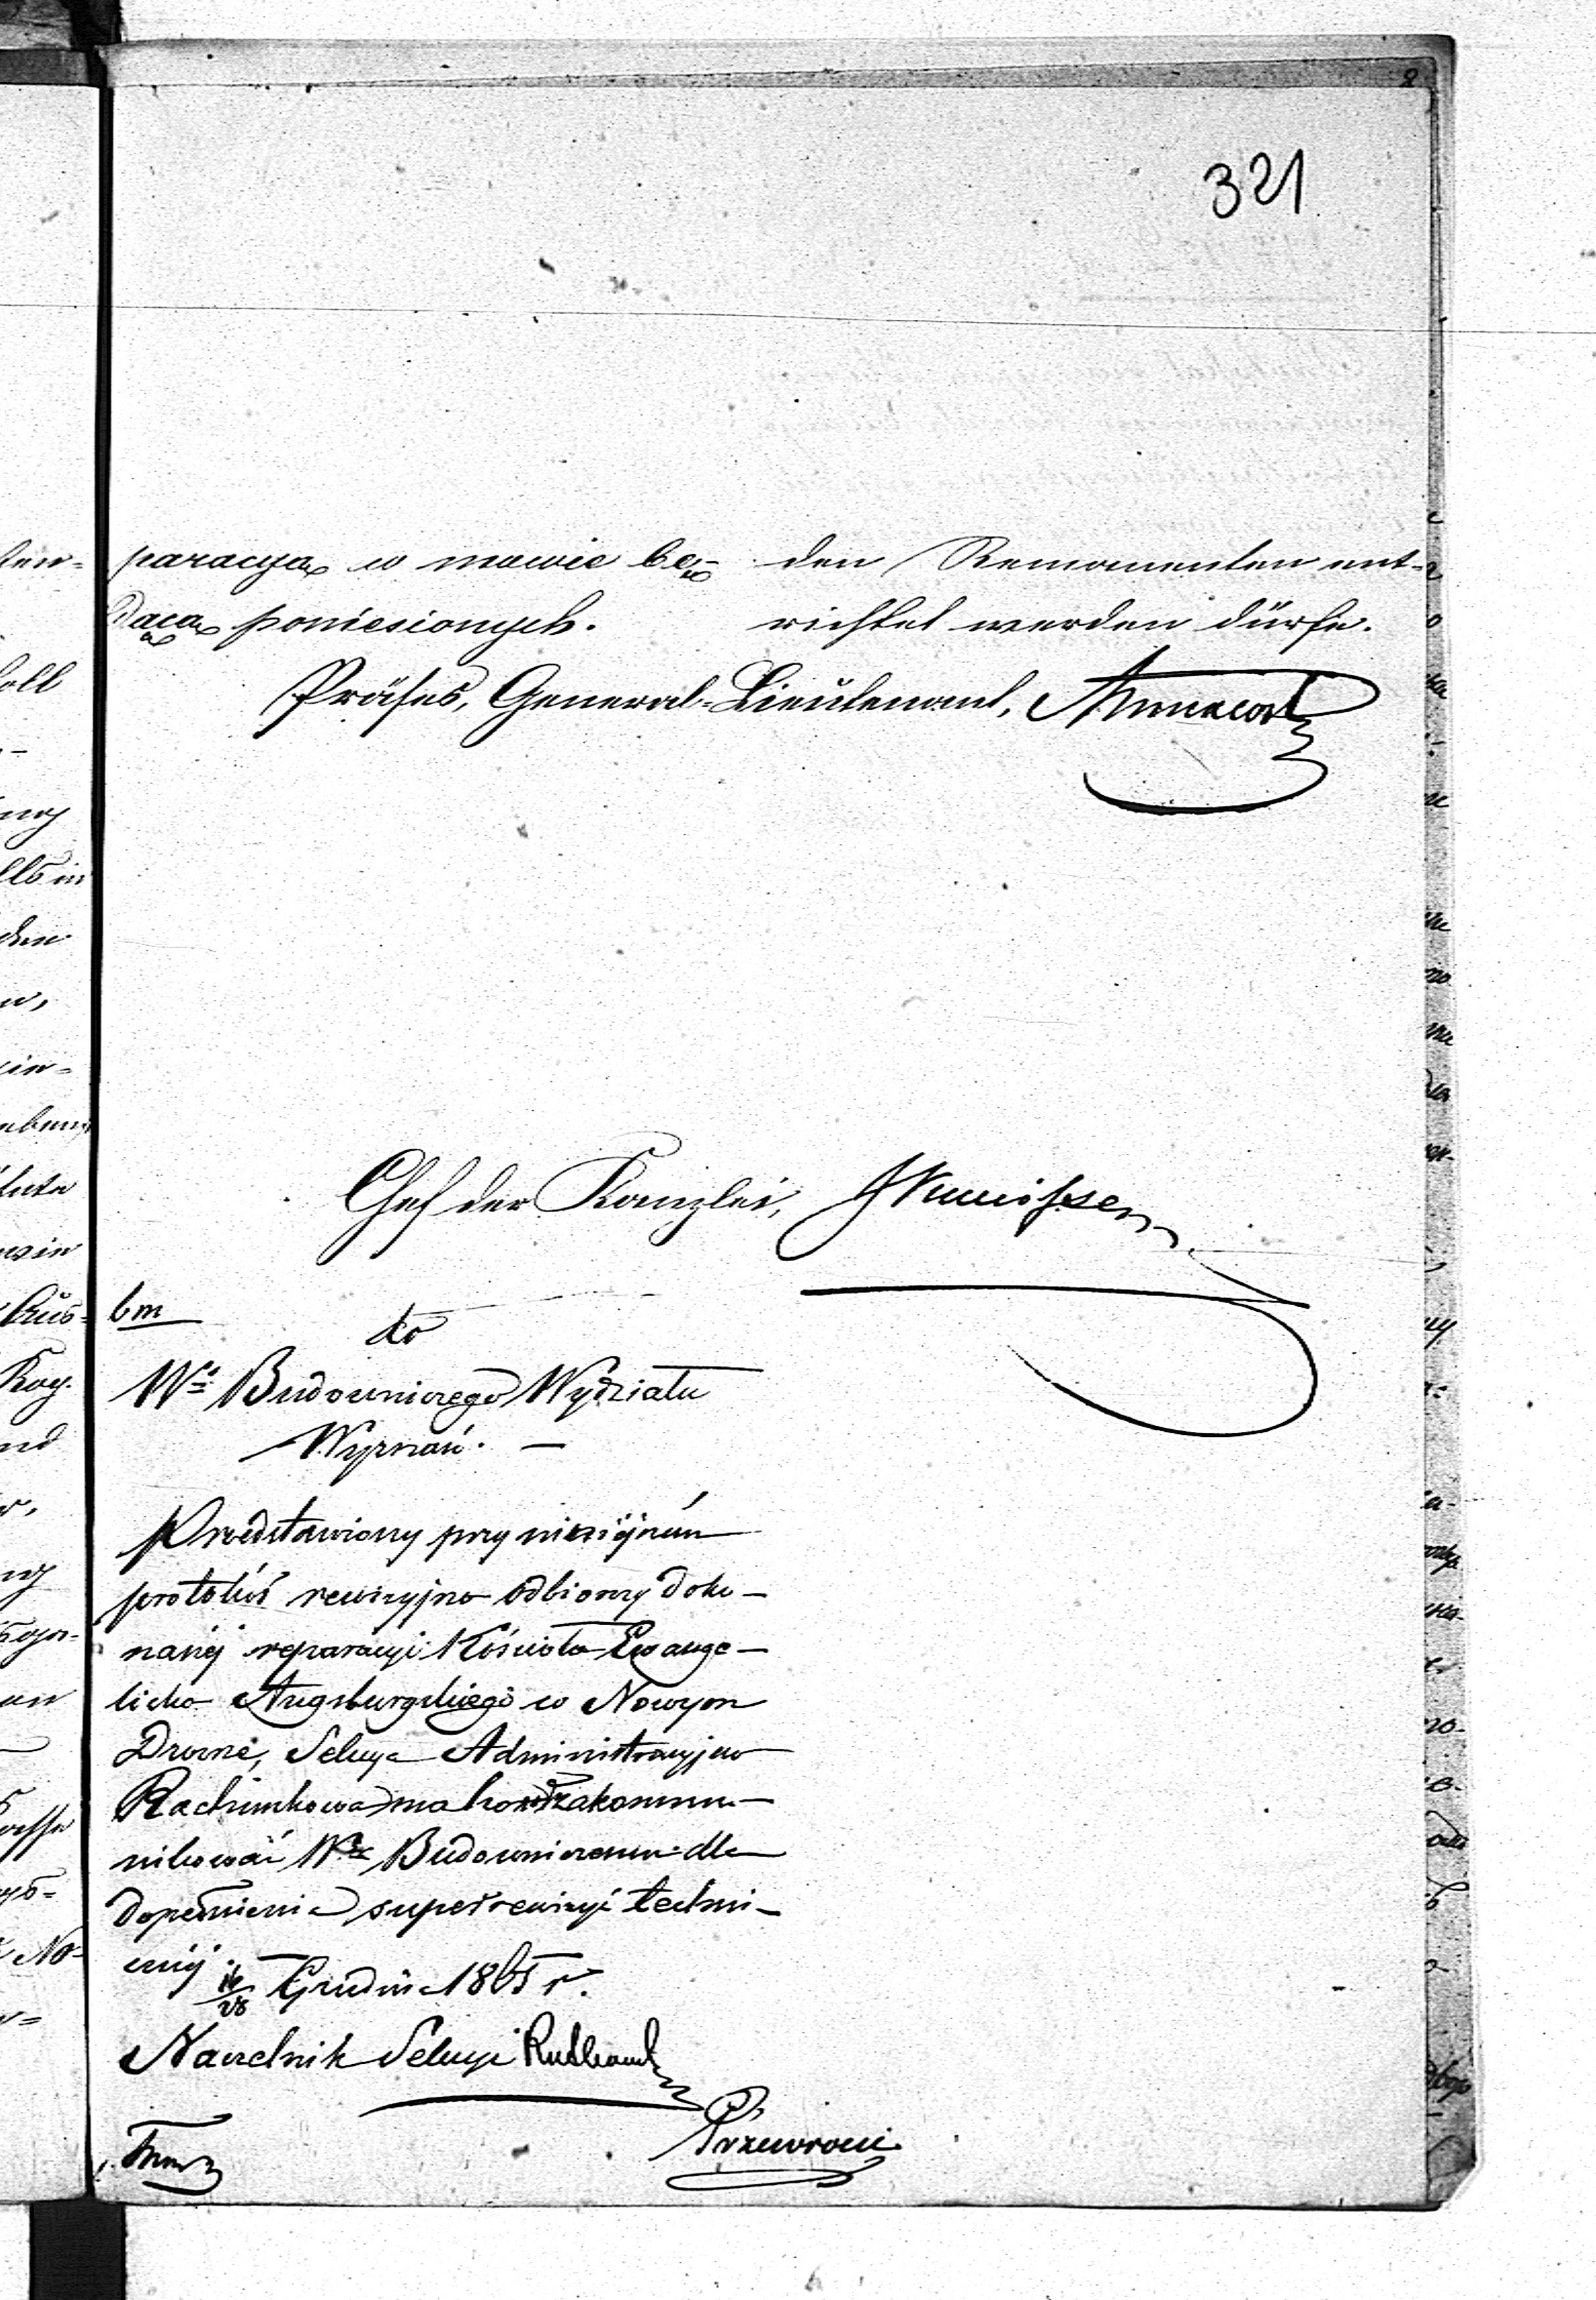 321
paracyą w mowie bę-
dącą poniesionych.
den Remanenten ent-
richtet werden dürfe.
Präses, General-Lieutenant,
Chef der Kanzlei,
bm
do
Wo Budowniczego Wydziału
Wyznań. —
Przedstawiony przy niniejszém
protokół rewizyjno odbiorczy doko-
nanéj reparacyi Kościoła Ewange-
licko Augsburgskiego w Nowym
Dworze, Sekcya Administracyjno
Rachunkowa ma honor zakommu-
nikować Wu Budowniczemu dla
dopełnienia superrewizyi techni-
cznéj.
16/28 Grudnia 1865 r.
Naczelnik Sekcyi